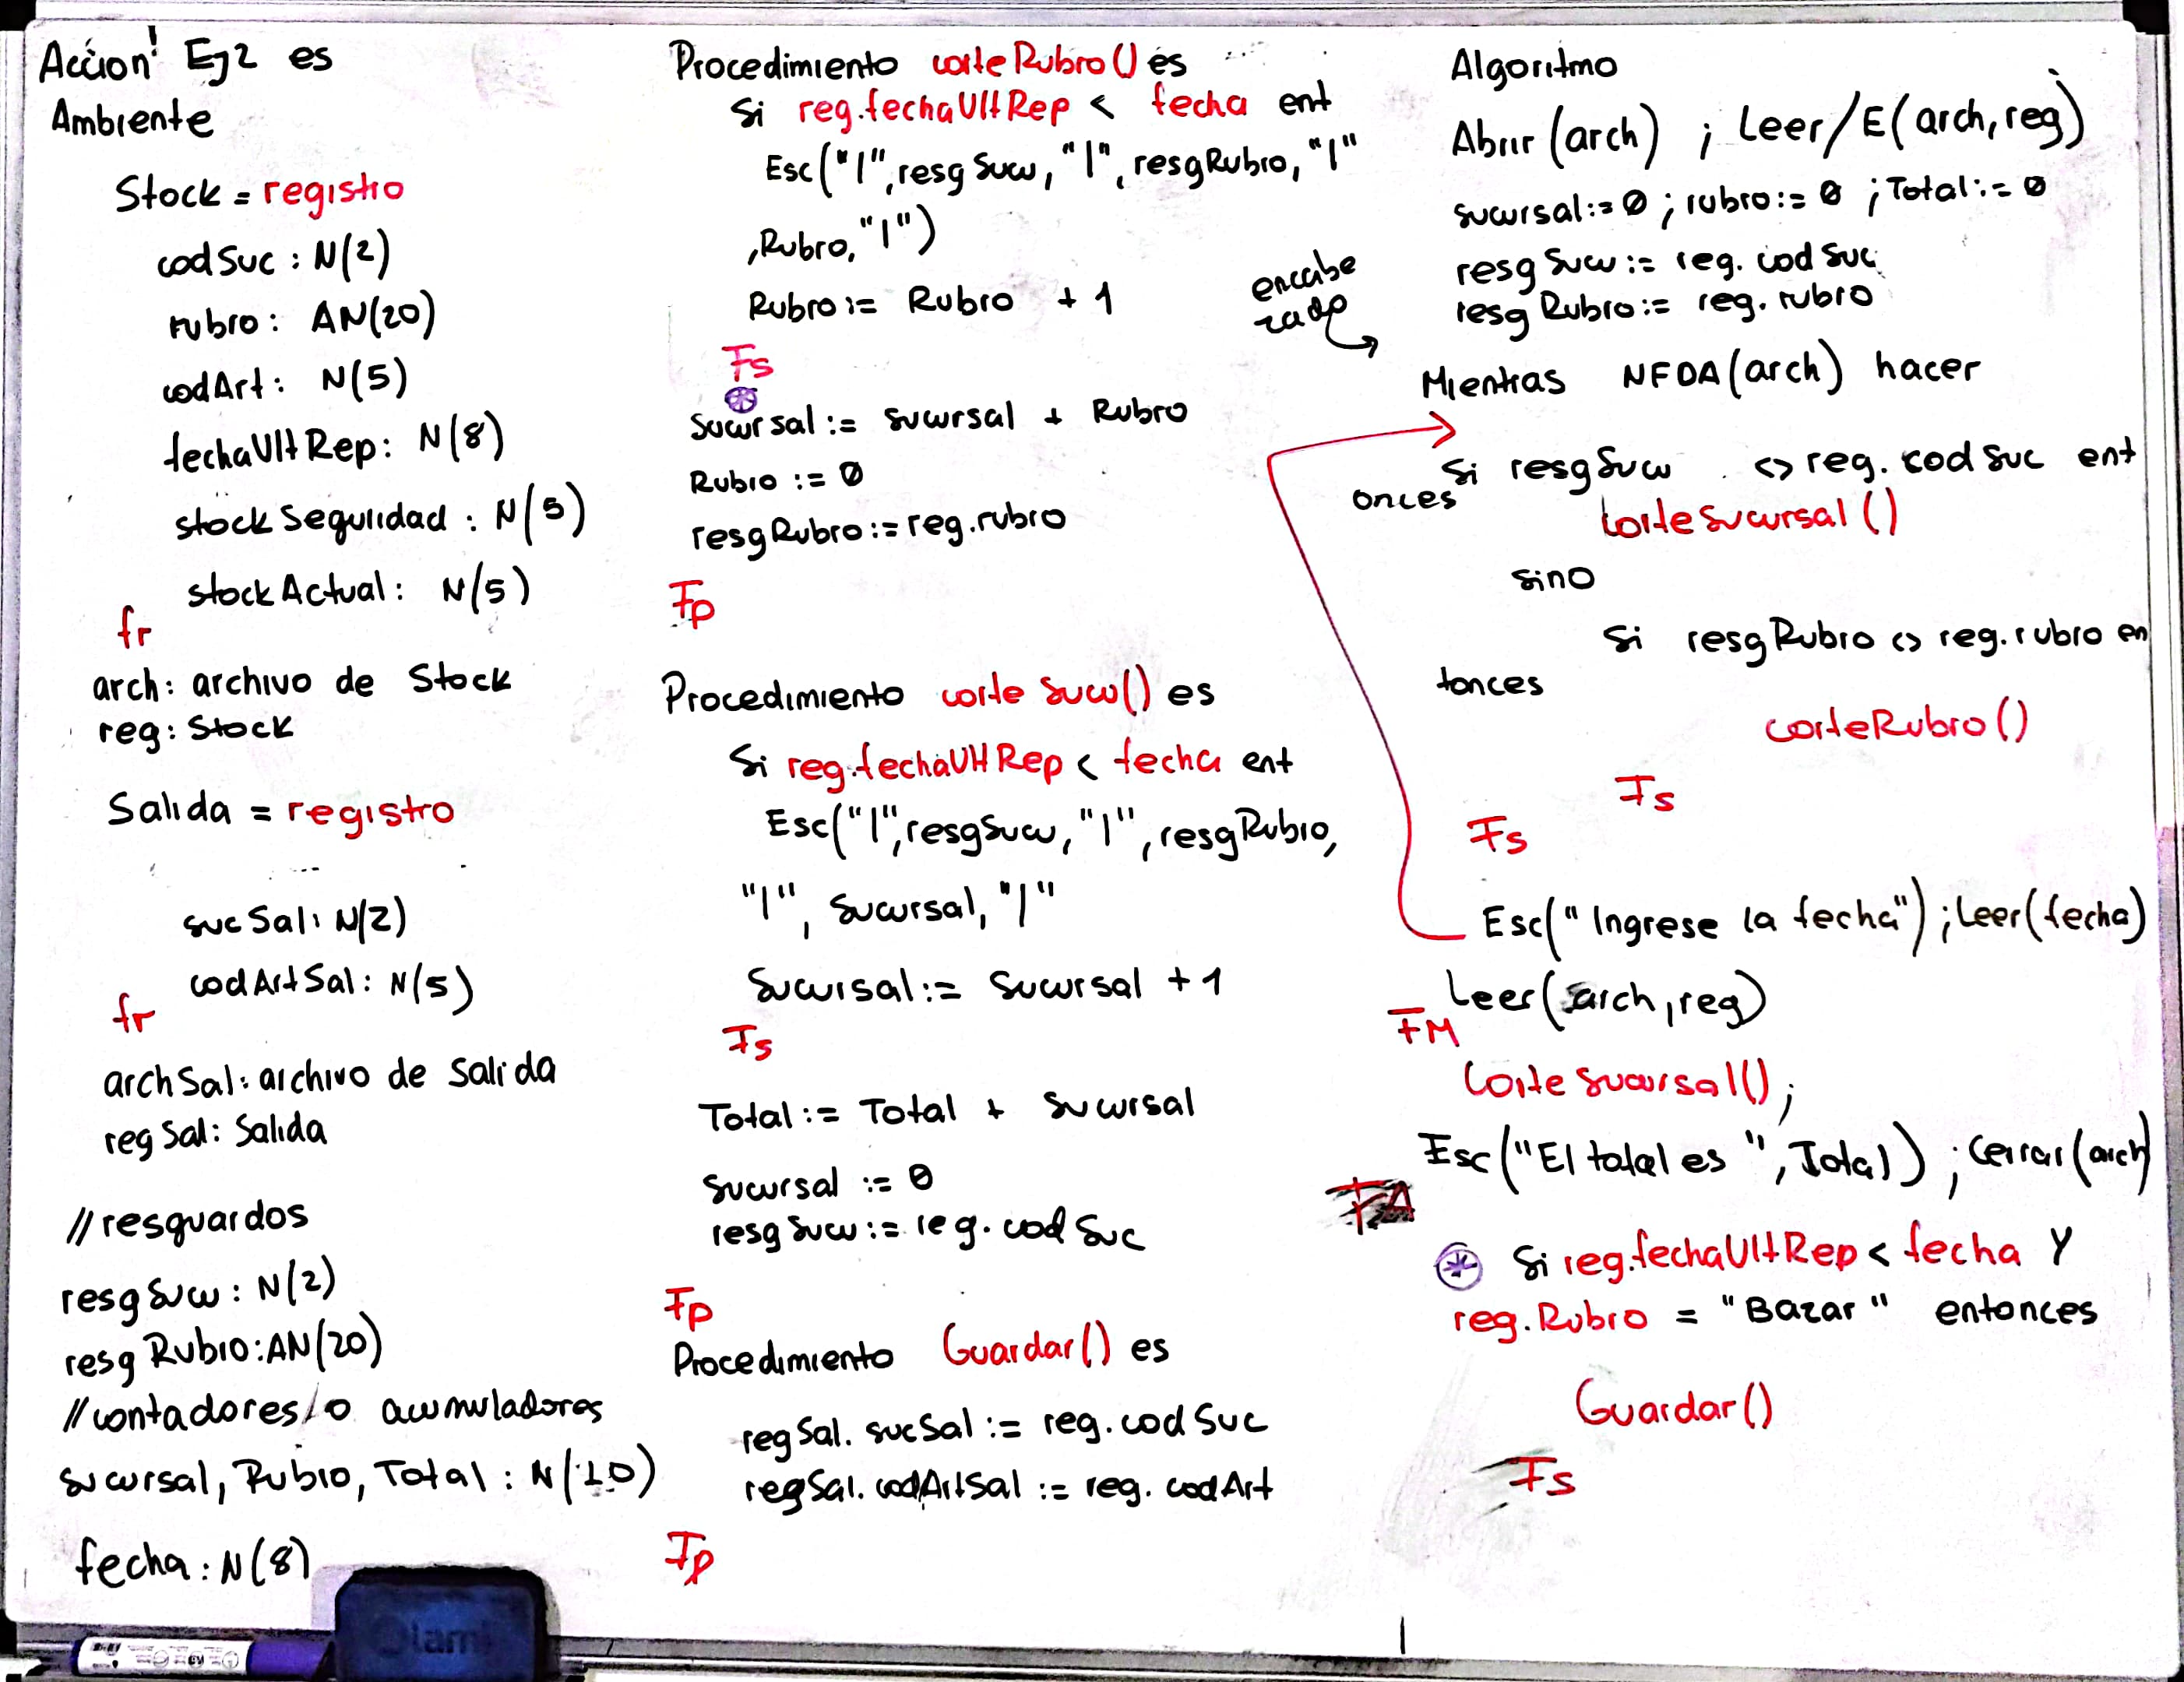 Acción! Ej2 es
Ambiente
Stock = registro
codSuc : N(2)
rubro : AN(20)
codArt : N(5)
fechaUltRep : N(8)
stockSeguridad : N(5)
stockActual : N(5)
fr
arch : archivo de Stock
reg : Stock
Salida = registro
sucSal : N(2)
codArtSal : N(5)
fr
archSal : archivo de Salida
regSal : Salida
// resguardos
resgSucu : N(2)
resgRubro : AN(20)
// contadores/o acumuladores
sucursal, Rubro, Total : N(10)
fecha : N(8)
Procedimiento corteRubro() es
Si reg.fechaUltRep < fecha ent
Esc("|", resgSucu, "|", resgRubro, "|"
,Rubro, "|")
Rubro := Rubro + 1
Fs
⊛
Sucursal := sucursal + Rubro
Rubro := 0
resgRubro := reg.rubro
Fp
Procedimiento corte Sucu() es
Si reg.fechaUltRep < fecha ent
Esc("|", resgSucu, "|", resgRubro,
"|", Sucursal, "|"
Sucursal := Sucursal + 1
Fs
Total := Total + sucursal
Sucursal := 0
resgSucu := reg.codSuc
Fp
Procedimiento Guardar() es
regSal.sucSal := reg.codSuc
regSal.codArtSal := reg.codArt
Fp
Algoritmo
Abrir(arch) ; Leer/E(arch,reg)
sucursal := 0 ; rubro := 0 ; Total := 0
resgSucu := reg.codSuc
resgRubro := reg.rubro
encabe
zado
Mientras NFDA(arch) hacer
Si resgSucu <> reg.codSuc ent
onces
CorteSucursal()
sino
Si resgRubro <> reg.rubro en
tonces
corteRubro()
Fs
Fs
Esc("Ingrese la fecha") ; Leer(fecha)
Leer(arch,reg)
FM
Corte sucursal() ;
Esc("El total es ", Total) ; Cerrar(arch)
FA
⊛ Si reg.fechaUltRep < fecha Y
reg.Rubro = "Bazar" entonces
Guardar()
Fs